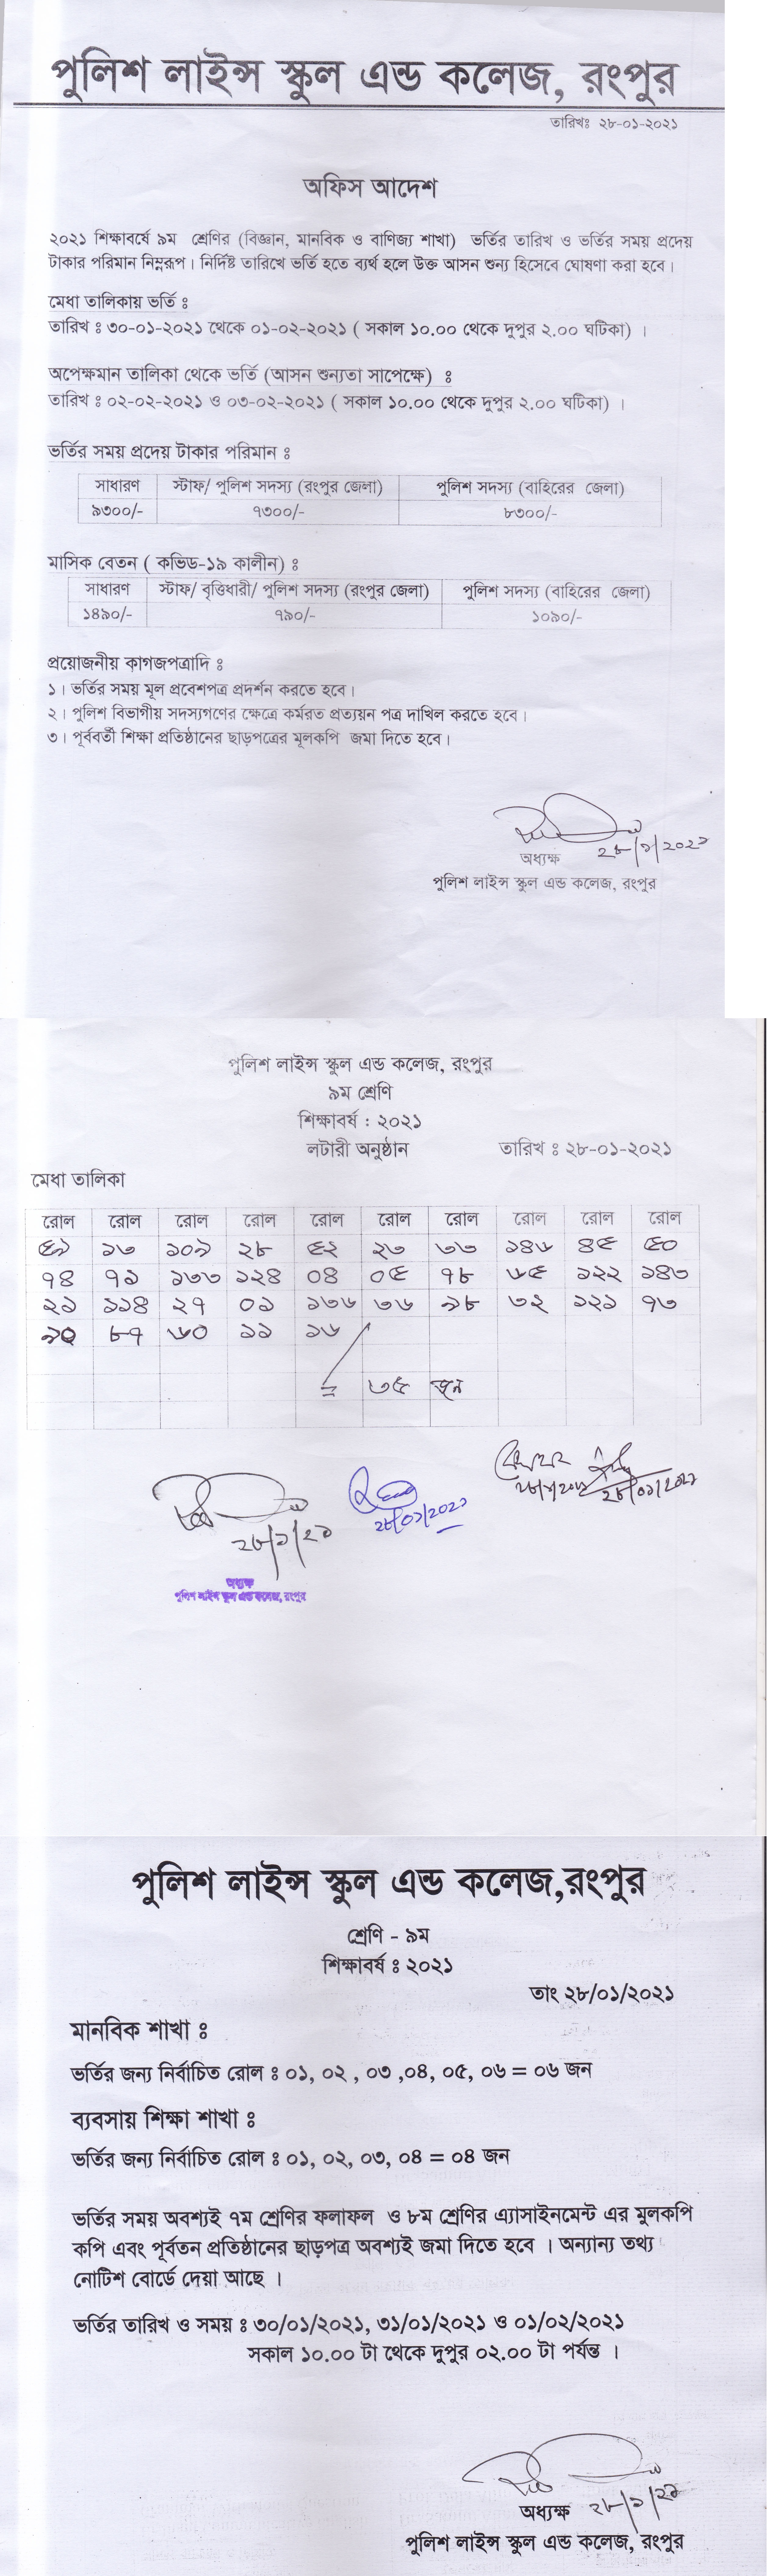 পুলিশ লাইন্স স্কুল এন্ড কলেজ, রংপুর
তারিখঃ ২৮-০১-২০২১
অফিস আদেশ
২০২১ শিক্ষাবর্ষে ৯ম শ্রেণির (বিজ্ঞান, মানবিক ও বাণিজ্য শাখা) ভর্তির তারিখ ও ভর্তির সময় প্রদেয়
টাকার পরিমান নিম্নরূপ। নির্দিষ্ট তারিখে ভর্তি হতে ব্যর্থ হলে উক্ত আসন শুন্য হিসেবে ঘোষণা করা হবে।
মেধা তালিকায় ভর্তি ঃ
তারিখ ঃ ৩০-০১-২০২১ থেকে ০১-০২-২০২১ ( সকাল ১০.০০ থেকে দুপুর ২.০০ ঘটিকা) ।
অপেক্ষমান তালিকা থেকে ভর্তি (আসন শুন্যতা সাপেক্ষে) ঃ
তারিখ ঃ ০২-০২-২০২১ ও ০৩-০২-২০২১ ( সকাল ১০.০০ থেকে দুপুর ২.০০ ঘটিকা) ।
ভর্তির সময় প্রদেয় টাকার পরিমান ঃ
সাধারণ স্টাফ/ পুলিশ সদস্য (রংপুর জেলা) পুলিশ সদস্য (বাহিরের জেলা)
৯৩০০/- ৭৩০০/- ৮৩০০/-
মাসিক বেতন ( কভিড-১৯ কালীন) ঃ
সাধারণ স্টাফ/ বৃত্তিধারী/ পুলিশ সদস্য (রংপুর জেলা) পুলিশ সদস্য (বাহিরের জেলা)
১৪৯০/- ৭৯০/- ১০৯০/-
প্রয়োজনীয় কাগজপত্রাদি ঃ
১। ভর্তির সময় মূল প্রবেশপত্র প্রদর্শন করতে হবে।
২। পুলিশ বিভাগীয় সদস্যগণের ক্ষেত্রে কর্মরত প্রত্যয়ন পত্র দাখিল করতে হবে।
৩। পূর্ববর্তী শিক্ষা প্রতিষ্ঠানের ছাড়পত্রের মূলকপি জমা দিতে হবে।
২৮/১/২০২১
অধ্যক্ষ
পুলিশ লাইন্স স্কুল এন্ড কলেজ, রংপুর
পুলিশ লাইন্স স্কুল এন্ড কলেজ, রংপুর
৯ম শ্রেণি
শিক্ষাবর্ষ : ২০২১
লটারী অনুষ্ঠান তারিখ ঃ ২৮-০১-২০২১
মেধা তালিকা
রোল রোল রোল রোল রোল রোল রোল রোল রোল রোল
৫৯ ১৩ ১০৯ ২৮ ৫২ ২৩ ৩৩ ১৪৬ ৪৫ ৫০
৭৪ ৭১ ১৩৩ ১২৪ ০৪ ০৫ ৭৮ ৬৫ ১২২ ১৪৩
২১ ১১৪ ২৭ ০১ ১৩৬ ৩৬ ৯৮ ৩২ ১২১ ৭৩
৯০ ৮৭ ৬০ ১১ ১৬
= ৩৫ জন
২৮/১/২১
২৮/০১/২০২১
২৮/০১/২০২১
অধ্যক্ষ
পুলিশ লাইন্স স্কুল এন্ড কলেজ, রংপুর
পুলিশ লাইন্স স্কুল এন্ড কলেজ,রংপুর
শ্রেণি - ৯ম
শিক্ষাবর্ষ ঃ ২০২১
তাং ২৮/০১/২০২১
মানবিক শাখা ঃ
ভর্তির জন্য নির্বাচিত রোল ঃ ০১, ০২ , ০৩ ,০৪, ০৫, ০৬ = ০৬ জন
ব্যবসায় শিক্ষা শাখা ঃ
ভর্তির জন্য নির্বাচিত রোল ঃ ০১, ০২, ০৩, ০৪ = ০৪ জন
ভর্তির সময় অবশ্যই ৭ম শ্রেণির ফলাফল ও ৮ম শ্রেণির এ্যাসাইনমেন্ট এর মুলকপি
কপি এবং পূর্বতন প্রতিষ্ঠানের ছাড়পত্র অবশ্যই জমা দিতে হবে । অন্যান্য তথ্য
নোটিশ বোর্ডে দেয়া আছে ।
ভর্তির তারিখ ও সময় ঃ ৩০/০১/২০২১, ৩১/০১/২০২১ ও ০১/০২/২০২১
সকাল ১০.০০ টা থেকে দুপুর ০২.০০ টা পর্যন্ত ।
অধ্যক্ষ ২৮/১/২১
পুলিশ লাইন্স স্কুল এন্ড কলেজ, রংপুর